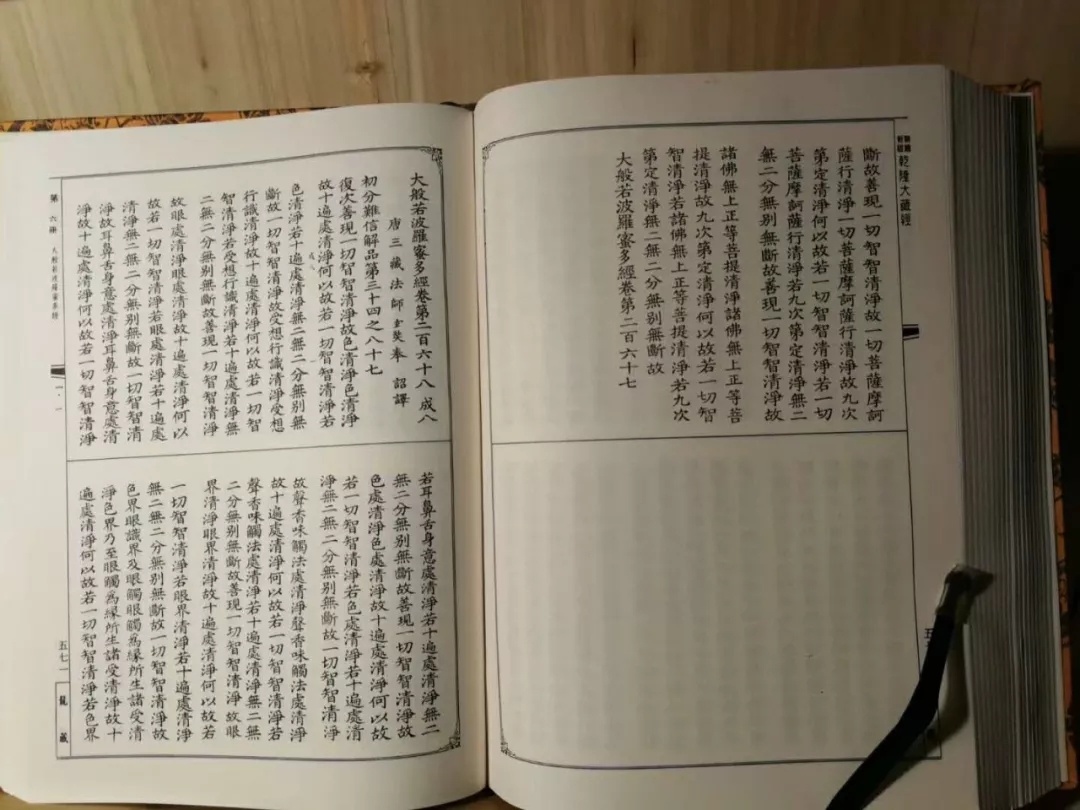 乾隆大藏經
斷故善現一切智智清淨故一切菩薩摩訶
薩行清淨一切菩薩摩訶薩行清淨故九次
第定清淨何以故若一切智智清淨若一切
菩薩摩訶薩行清淨若九次第定清淨無二
無二分無別無斷故善現一切智智清淨故
諸佛無上正等菩提清淨諸佛無上正等菩
提清淨故九次第定清淨何以故若一切智
智清淨若諸佛無上正等菩提清淨若九次
第定清淨無二無二分無別無斷故
大般若波羅蜜多經卷第二百六十七
五
大般若波羅蜜多經卷第二百六十八 成八
唐三藏法師玄奘奉 詔譯
初分難信解品第三十四之八十七
復次善現一切智智清淨故色清淨色清淨
故十遍處清淨何以故若一切智智清淨若
色清淨若十遍處清淨無二無二分無別無
斷故一切智智清淨故受想行識清淨受想
行識清淨故十遍處清淨何以故若一切智
智清淨若受想行識清淨若十遍處清淨無
二無二分無別無斷故善現一切智智清淨
故眼處清淨眼處清淨故十遍處清淨何以
故若一切智智清淨若眼處清淨若十遍處
清淨無二無二分無別無斷故一切智智清
淨故耳鼻舌身意處清淨耳鼻舌身意處清
淨故十遍處清淨何以故若一切智智清淨
若耳鼻舌身意處清淨若十遍處清淨無二
無二分無別無斷故善現一切智智清淨故
色處清淨色處清淨故十遍處清淨何以故
若一切智智清淨若色處清淨若十遍處清
淨無二無二分無別無斷故一切智智清淨
故聲香味觸法處清淨聲香味觸法處清淨
故十遍處清淨何以故若一切智智清淨若
聲香味觸法處清淨若十遍處清淨無二無
二分無別無斷故善現一切智智清淨故眼
界清淨眼界清淨故十遍處清淨何以故若
一切智智清淨若眼界清淨若十遍處清淨
無二無二分無別無斷故一切智智清淨故
色界眼識界及眼觸眼觸為緣所生諸受清
淨色界乃至眼觸為緣所生諸受清淨故十
遍處清淨何以故若一切智智清淨若色界
第六冊 大般若波羅蜜多經
五七一
龍藏